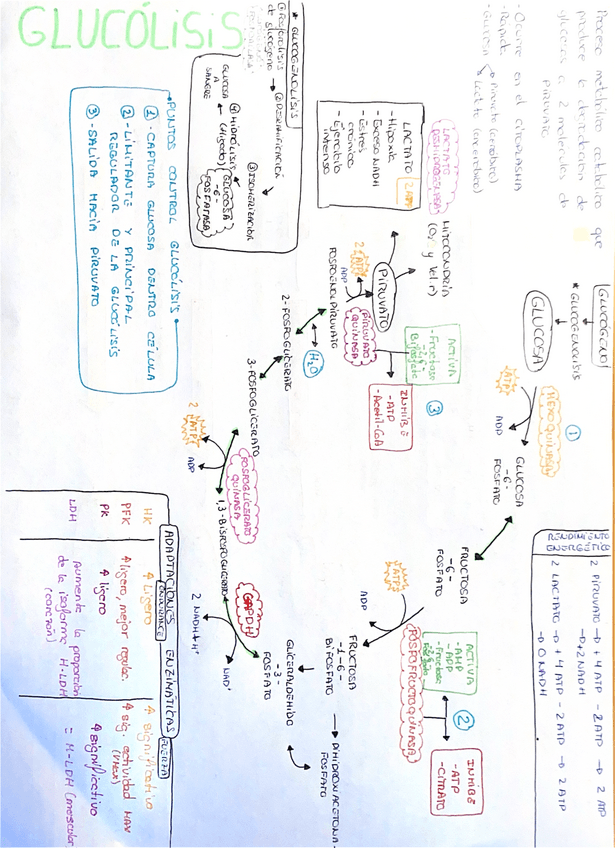 GLUCÓLISIS
Proceso metabólico catabólico que
produce la degradación de
glucosa a 2 moléculas de
piruvato
- Ocurre en el citoplasma
- Rápida
- Glucosa
Piruvato (aerobico)
Lactato (anaerobico)
* GLUCOGENOLISIS
① Fosforolisis
de glucógeno
② DESRAMIFICACIÓN
③ ISOMERIZACIÓN
④ HIDRÓLISIS
(Hígado)
GLUCOSA
-6-
FOSFATASA
GLUCOSA
A
SANGRE
• PUNTOS CONTROL GLUCÓLISIS •
① - CAPTURA GLUCOSA DENTRO CÉLULA
② - LIMITANTE Y PRINCIPAL
REGULADOR DE LA GLUCÓLISIS
③ - SALIDA HACIA PIRUVATO
GLUCOGENO
* GLUCOGENOLISIS
GLUCOSA
①
HEXOQUINASA
ATP
ADP
GLUCOSA
-6-
FOSFATO
FRUCTOSA
-6-
FOSFATO
ATP
ADP
FOSFOFRUCTOQUINASA
②
ACTIVA
- AMP
- ADP
- Fructosa
INHIBE
- ATP
- CITRATO
FRUCTOSA
-1-6-
BIFOSFATO
DIHIDROXIACETONA-
FOSFATO
GLICERALDEHIDO
-3-
FOSFATO
GAPDH
NAD+
2 NADH+H+
1,3-BISFOSFOGLICERATO
FOSFOGLICERATO
QUINASA
ADP
2 ATP
3-FOSFOGLICERATO
2-FOSFOGLICERATO
H2O
FOSFOENOLPIRUVATO
ADP
2 ATP
PIRUVATO
QUINASA
③
ACTIVA
- Fructosa
INHIBE
- ATP
- Acetil-CoA
PIRUVATO
MITOCONDRIA
LACTATO
LACTATO 2 ATP
- Hipoxia
- Exceso NADH
- Estrés
crónico
- Ejercicio
intenso
RENDIMIENTO
ENERGÉTICO
2 PIRUVATO → + 4 ATP - 2 ATP → 2 ATP
→ + 2 NADH
2 LACTATO → + 4 ATP - 2 ATP → 2 ATP
→ 0 NADH
ADAPTACIONES ENZIMÁTICAS
FUERZA
HK ↑ ligero ↑ significativo
PFK ↑ ligero, mejor regulac. ↑ sig. actividad MAX
PK ↑ ligero ↑ significativo
LDH aumenta la proporción = M-LDH (muscular
de la isoforma H-LDH
(corazón)